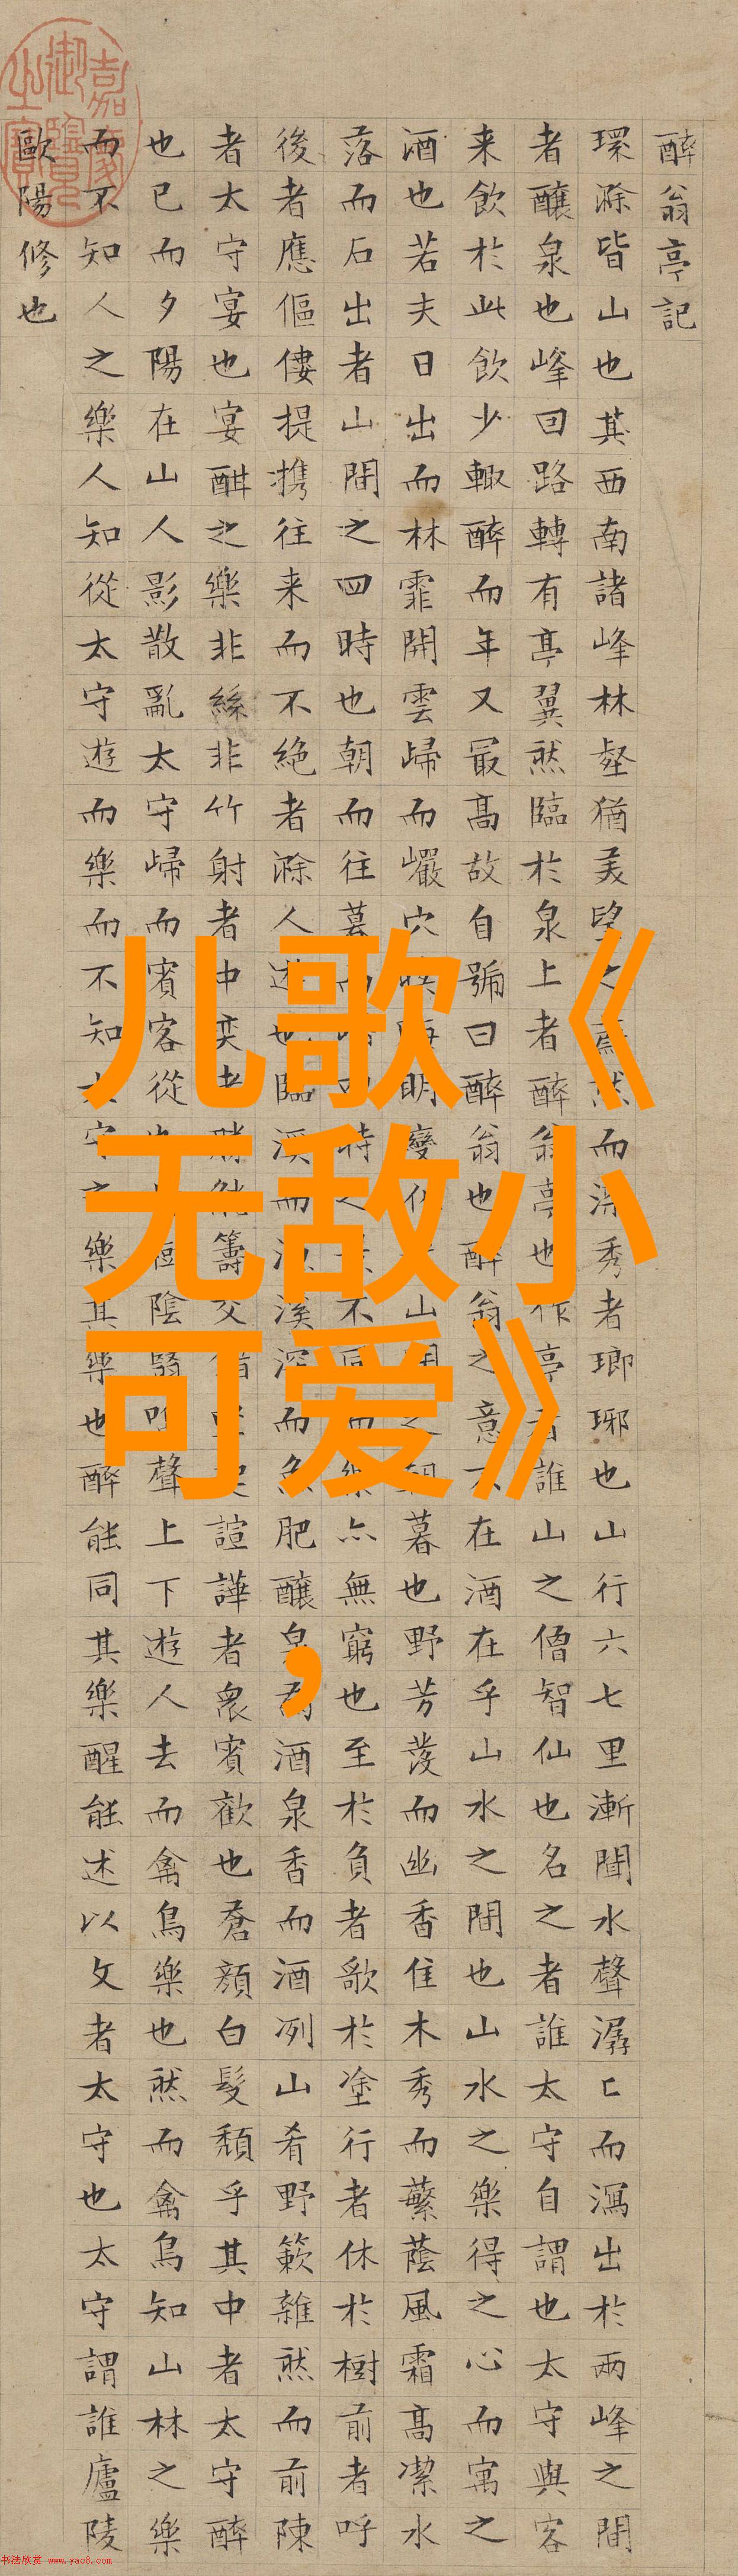 醉翁亭記
環滁皆山也其西南諸峰林壑猶美望之蔚然而深秀者瑯琊也山行六七里漸聞水聲潺〻而瀉出於兩峰之間
者釀泉也峰回路轉有亭翼然臨於泉上者醉翁亭也作亭者誰山之僧智仙也名之者誰太守自謂也太守與客
来飲於此飲少輙醉而年又最高故自號曰醉翁也醉翁之意不在酒在乎山水之間也山水之樂得之心而寓之
酒也若夫日出而林霏開雲歸而巖穴暝晦明變化者山間之朝暮也野芳發而幽香佳木秀而蘩蔭風霜高潔水
落而石出者山間之四時也朝而往暮而歸四時之景不同而樂亦無窮也至於負者歌於塗行者休於樹前者呼
後者應傴僂提攜往来而不絶者滁人遊也臨溪而漁溪深而魚肥釀泉為酒泉香而酒冽山肴野蔌雜然而前陳
者太守宴也宴酣之樂非絲非竹射者中奕者勝觥籌交錯坐起諠譁者衆賓歡也蒼顏白髮頹乎其中者太守醉
也已而夕陽在山人影散亂太守歸而賓客從也陰翳鳴聲上下遊人去而禽鳥樂也然而禽鳥知山林之樂
而不知人之樂人知從太守遊而樂而不知太守之樂其樂也醉能同其樂醒能述以文者太守也太守謂誰廬陵
歐陽修也
嘉慶御覽之寶
儿歌《
无敌小
可爱》
,
书法欣赏 www.yac8.com